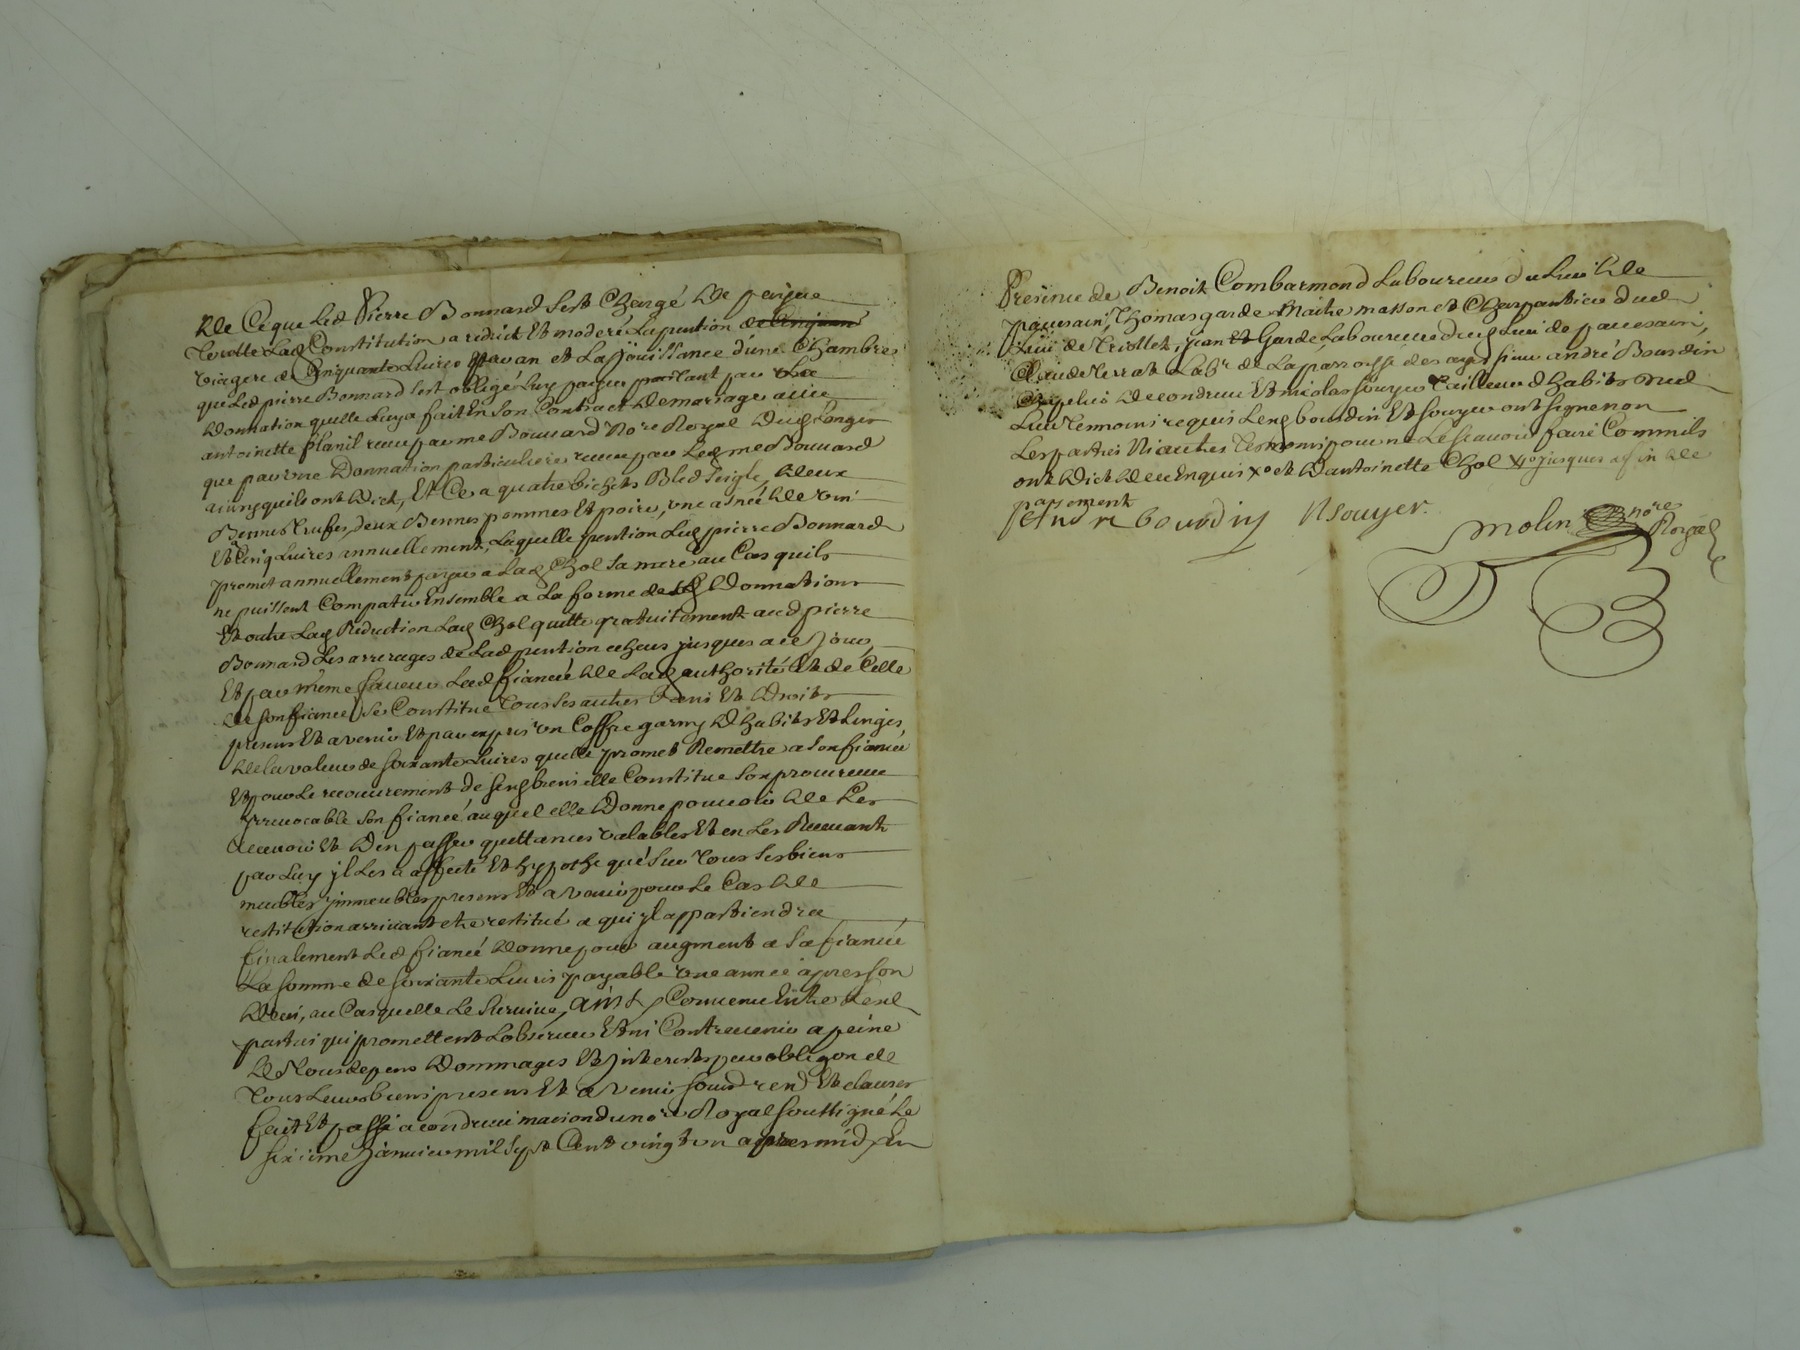 de Ceque Led Pierre Bonnard sest Chargé de payer
Lad Constitution a reduict et moderé La pention
viagere de Cinquante Livres par an et La jouissance d'une Chambre
que Led pierre Bonnard sest obligé Luy payer portant par La
donnation quelle Luy a fait en son Contract de mariage avec
antoinette flanil receu par me Bonnard No.re Royal
que par une Donnation particuliere receue par Led me Bonnard
ainsy quils ont dict, Et Ce a quatre bichets Bled seigle, deux
Bennes trufes, deux Bennes pommes et poires, une asnée de vin
Et Cinq Livres annuellement, Laquelle pention Led pierre Bonnard
promet annuellement payer a Lad Chol sa mere au Cas quils
ne puissent Compatir Ensemble a La forme desd Donnations
Et outre Lad Reduction Lad Chol quitte gratuitement aud pierre
Bonnard Les arrerages de Lad pention echeus jusques a ce jour,
Et par mesme faveur Lad fiancée de Lad authorité et de Celle
de son fiancé se Constitue tous ses autres biens Et droits
presens Et avenir Et par exprés un Coffre garny d habits Et linges
de la valeur de soixante Livres quelle promet Remettre a son fiancé
Et pour Le recouvrement de sesd biens elle Constitue son procureur
yrrevocable son fiancé auquel elle donne pouvoir de Les
recevoir et den passer quittances valables Et en Les Recevant
par Luy yl Les a affecté Et hypothequé sur tous ses biens
meubles ymmeubles presens Et avenir pour Le Cas de
restitution arrivant estre restitué a qui yl appartiendra
finalement Led fiancé donne pour augment a sa fiancée
La somme de soixante Livres payable une année apres son
deces, au Cas quelle Le survive, ainsy Convenu Entre Lesd
parties qui promettent Lobserver Et ni Contrevenir a peine
de tous depens dommages Et jnterests par obligon de
tous Leurs biens presens Et avenir soud rend Et clauses
fait Et passé a condrieu maison du no.re Royal soussigné Le
sixieme janvier mil sept Cent vingt un apres midy En
Presence de Benoit Combarmond Laboureur du Lieu de
pavesain, Thomas garde maitre masson et Charpantier dud
Lieu de triollet, jean Garde Laboureur dud Lieu de pavesain,
Claude terrat Lab.r de La parroisse des ayes sieur andré Bourdin
Chapelier de condrieu Et nicolas souyer tailleur d habits dud
Lieu temmoins requis Lesq bourdin Et souyer ont signé non
Les parties Ni autres tesmoins pour ne Le scavoir faire Comme ils
ont dict de ce Enquis Xo et d antoinette Chol jusques a fin de
payement
andre bourdin Nsouyer.
Molin no.re
Royal